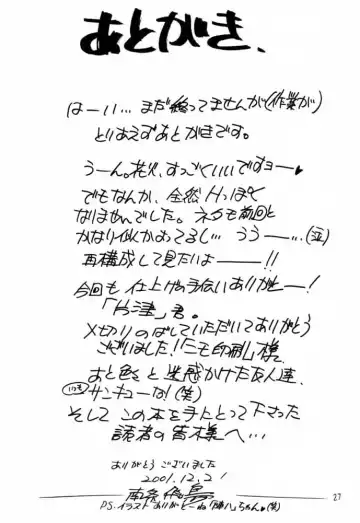 あとがき、
はーい…まだ終ってませんが(作業が)
とりあえずあとがきです。
うーん。花火、すっごくいいですョー♥
でもなんか、全然Hっぽく
なりませんでした。ネタも前回と
かなり似かよってるし…うう——…(泣)
再構成して見たいよ———!!
今回も仕上げの手伝いありがとー!
「片津」君。
〆切りのばしていただいてありがとう
ございました!「ニモ印刷」様、
あと色々と迷惑かけた友人達、
サンキューな!(笑)
そして この本を手にとって下さった
読者の皆様へ…
ありがとうございました
2001.12.2
P.S.イラストありがとーね「勝八」ちゃん♥(笑)
27